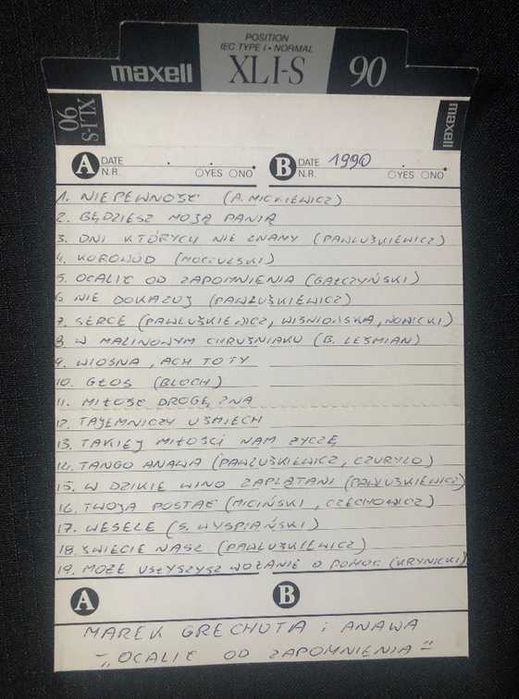 POSITION
IEC TYPE I • NORMAL
maxell XLI-S 90
XLI-S 90
maxell
A DATE . . B DATE 1990 .
N.R. ○YES ○NO N.R. ○YES ○NO
1. NIEPEWNOŚĆ (A. MICKIEWICZ)
2. BĘDZIESZ MOJĄ PANIĄ
3. DNI KTÓRYCH NIE ZNAMY (PAWLUŚKIEWICZ)
4. KOROWÓD (MOCZULSKI)
5. OCALIĆ OD ZAPOMNIENIA (GAŁCZYŃSKI)
6. NIE DOKAZUJ (PAWLUŚKIEWICZ)
7. SERCE (PAWLUŚKIEWICZ, WIŚNIOWSKA, NOWICKI)
8. W MALINOWYM CHRUŚNIAKU (B. LEŚMIAN)
9. WIOSNA, ACH TO TY
10. GŁOS (BLOCH)
11. MIŁOŚĆ DROGĘ ZNA
12. TAJEMNICZY UŚMIECH
13. TAKIEJ MIŁOŚCI NAM ŻYCZĘ
14. TANGO ANAWA (PAWLUŚKIEWICZ, CZURYŁO)
15. W DZIKIE WINO ZAPLĄTANI (PAWLUŚKIEWICZ)
16. TWOJA POSTAĆ (MICIŃSKI, CZECHOWICZ)
17. WESELE (S. WYSPIAŃSKI)
18. ŚWIECIE NASZ (PAWLUŚKIEWICZ)
19. MOŻE USŁYSZYSZ WOŁANIE O POMOC (KRYNICKI)
A B
MAREK GRECHUTA i ANAWA
- "OCALIĆ OD ZAPOMNIENIA" -